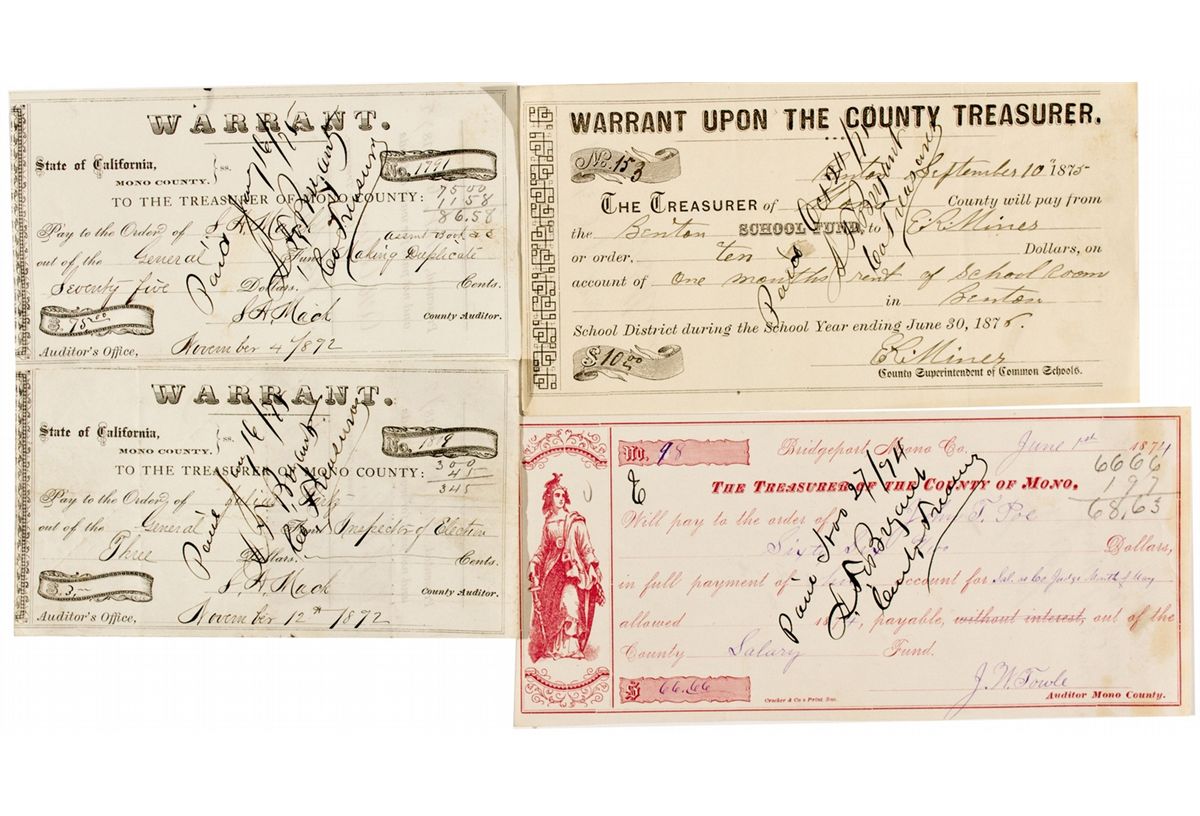 WARRANT.
State of California,
MONO COUNTY.
ss.
No. 1791
TO THE TREASURER OF MONO COUNTY:
75 00
11 58
86.58
Pay to the Order of
out of the General Fund, Making Duplicate
Seventy five Dollars. Cents.
$ 75.00
County Auditor.
Auditor's Office, November 4 1872
Paid
Co Treasurer
WARRANT.
State of California,
MONO COUNTY.
ss.
No.
TO THE TREASURER OF MONO COUNTY:
3 00
45
3 45
Pay to the Order of
out of the General Fund Inspector of Election
Three Dollars. Cents.
$ 3.—
County Auditor.
Auditor's Office, November 12th 1872
Paid
Co Treasurer
WARRANT UPON THE COUNTY TREASURER.
No. 153
Benton September 10th 1875
THE TREASURER of County will pay from
the Benton SCHOOL FUND, to E.R. Miner
or order, Ten Dollars, on
account of One months rent of School room
in Benton
School District during the School Year ending June 30, 1876.
$ 10.00
E.R. Miner
County Superintendent of Common Schools.
Paid Oct
Co Treasurer
No. 98
Bridgeport Mono Co. June 1st 1874
66 66
1 97
68,63
THE TREASURER OF THE COUNTY OF MONO.
Will pay to the order of T. Poe
Sixty Dollars,
in full payment of account for Sal. as Co Judge Month of May
allowed 1874, payable, without interest, out of the
County Salary Fund.
$ 66.66
J. W. Towle
Auditor Mono County.
Crocker & Co's Print,
Paid Nov 27/74
County Treasurer